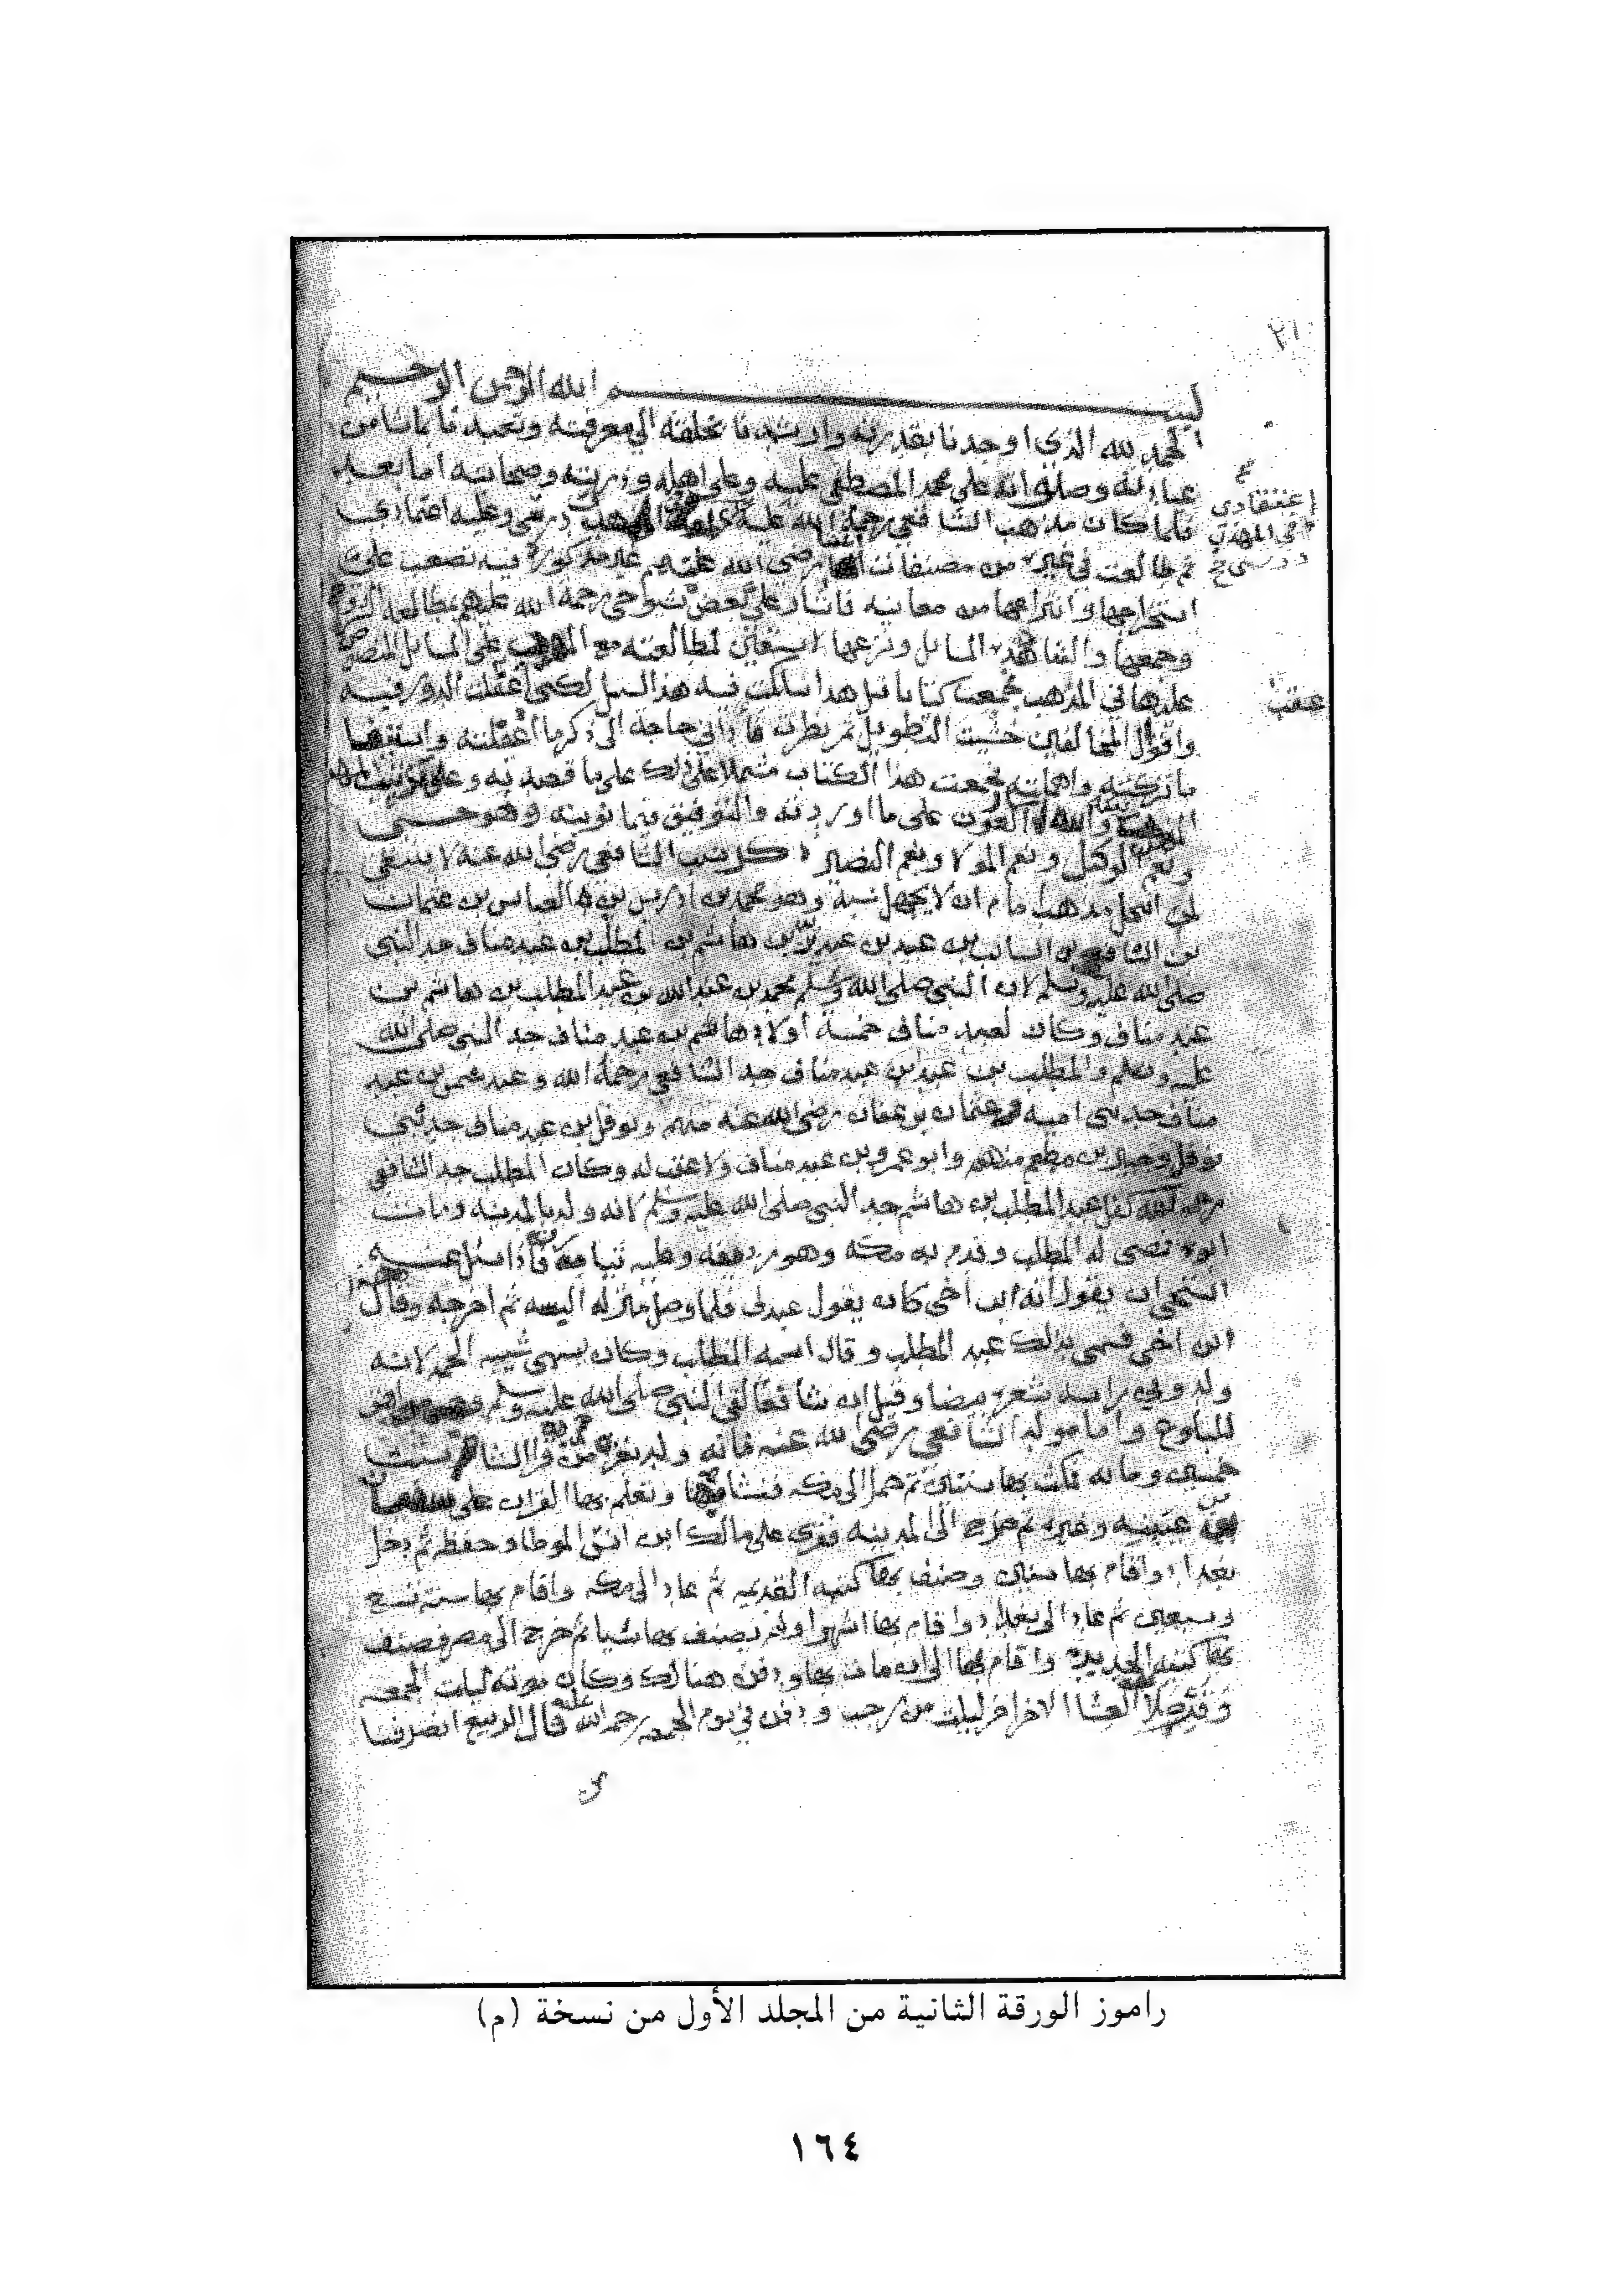 بسم الله الرحمن الرحيم
الحمد لله الذي اوجدنا بقدرته وارشدنا بخلقه الى معرفته وتعبدنا بما شا من
عبادته وصلواته على محمد المصطفى عليه وعلى اهله وذريته وصحابته اما بعد
فلما كان مذهب الشافعي رحمة الله عليه درسي وعليه اعتمادي
ثم طالعت في غيره من مصنفات رضي الله عنهم غير مذكورة فيه تصعب على
استخراجها وانتزاعها من معانيه فاشار علي بعض شيوخي رحمة الله عليهم بمطالعة الشروح
وجمعها والتقاط هذه المسائل ونزعها لا ستعين لمطالعته مع المهذب على المسائل المنصوص
عليها في المذهب فجمعت كتابا قبل هذا سلكت فيه هذا السبيل لكني اغفلت الدور فيه
واقوال المخالفين خشيت التطويل ثم نظرت فاذا بي حاجة الى ذكر ما اغفلته
ما تركته واهملته فجمعت هذا الكتاب مشتملا على ذلك على ما قصدته وعلى ترتيب
العون على ما اوردته والتوفيق فيما نويته وهو حسبي
ونعم الوكيل ونعم المولا ونعم النصير ذكر نسب الشافعي رضي الله عنه لا ينبغي
لمن انتحل مذهب امام ان لا يجهل نسبه وهو محمد بن ادريس بن العباس بن عثمان
بن الشافع بن السائب بن عبيد بن عبد يزيد بن هاشم بن المطلب بن عبد مناف جد النبي
صلى الله عليه وسلم لان النبي صلى الله وسلم محمد بن عبد الله بن عبد المطلب بن هاشم بن
عبد مناف وكان لعبد مناف خمسة اولاد هاشم بن عبد مناف جد النبي صلى الله
عليه وسلم والمطلب بن عبد مناف جد الشافعي رحمة الله وعبد شمس بن عبد
مناف جد بني امية وعثمان بن عفان رضي الله عنه منهم ونوفل بن عبد مناف جد بني
نوفل وجبير بن مطعم منهم وابو عمرو بن عبد مناف ولا عقب له وكان المطلب جد الشافعي
رحمه الله كفل عبد المطلب بن هاشم جد النبي صلى الله عليه وسلم لانه ولد بالمدينة ومات
ابوه فمضى له المطلب وقدم به مكة وهو رديفه وعليه ثياب فاذا سئل عنه
استحى ان يقول انه ابن اخي كان يقول عبدي فلما وصل منزله البسه ثم اخرجه وقال
ابن اخي فسمي بذلك عبد المطلب وقال اسمه المطلب وكان يسمى شيبه الحمد لانه
ولد وفي راسه شعره بيضا وقيل ان شافعا لقي النبي صلى الله عليه وسلم وهو
للبلوغ واما مولد الشافعي رضي الله عنه فانه ولد بغزه من قرا الشام سنت
خمسين ومايه فمكث بها سنتين ثم حمل الى مكه فنشا بها وتعلم بها القران على سفيان
بن عيينه وغيره ثم خرج الى المدينه فقرى على مالك ابن انس الموطا وحفظه ثم دخل
بغداد واقام بها سنتين وصنف بها كتبه القديمه ثم عاد الى مكه واقام بها سنة تسع
وسبعين ثم عاد الى بغداد واقام بها اشهرا ولم يصنف بها شيا ثم خرج الى مصر فصنف
بها كتبه الجديده واقام بها الى ان مات بها ودفن هنالك وكان موته ليلت الجمعه
وقد صلا العشا الاخر اخر ليلت من رجب ودفن في يوم الجمعه رحمه الله عليه قال الربيع انصرفنا
اعتقادي
في المهذب
عقب
٢١
راموز الورقة الثانية من المجلد الأول من نسخة (م)
١٦٤